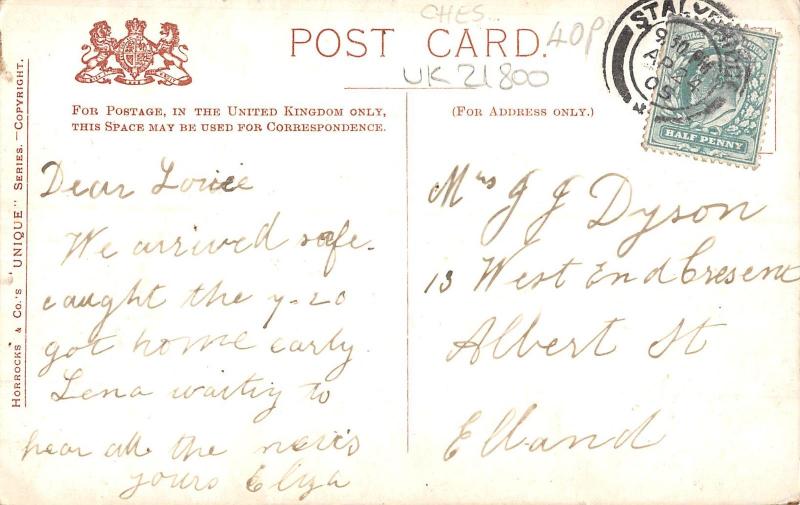 CHES...
POST CARD.
40P
UK 21800
FOR POSTAGE, IN THE UNITED KINGDOM ONLY,
THIS SPACE MAY BE USED FOR CORRESPONDENCE.
(FOR ADDRESS ONLY.)
HORROCKS & CO.'S "UNIQUE" SERIES.—COPYRIGHT.
9.30 PM
AP 24
05
HALF PENNY
Dear Louie
We arrived safe.
caught the 7-20
got home early
Lena waitig to
hear all the news
yours Eliza
Mrs J J Dyson
13 West End Cresent
Albert St
Elland